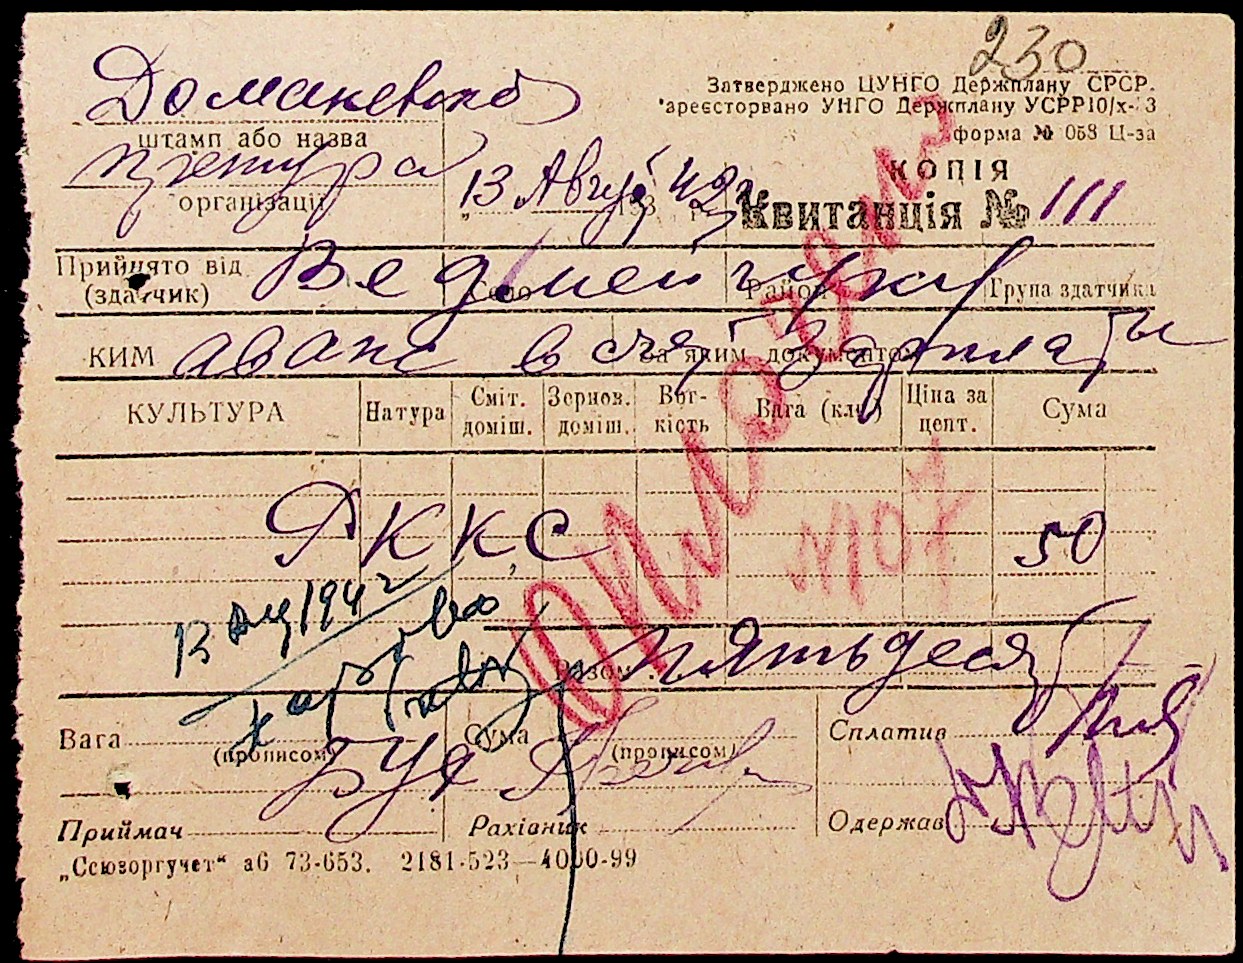 230
Доманевская
Затверджено ЦУНГО Держплану СРСР.
ареєсторвано УНГО Держплану УСРР10/х- 3
штамп або назва
форма № 058 Ц-за
претура
КОПІЯ
організації
13 Август 42 г
193 р.
Квитанція № 111
Прийнято від
(здатчик)
Ведмейчуку
Село
Район
Група здатчика
КИМ
аванс в счет зарплаты
За яким документом
КУЛЬТУРА
Натура
Сміт. доміш.
Зернов. доміш.
Вог-кість
Вага (клг)
Ціна за цент.
Сума
РККС
50
Оплочен
№107
13 Авг 1942
Разом
Пятьдесят
Вага
(прописом)
Сума
(прописом)
Сплатив
Бух
Приймач
Рахівник
Одержав
„Сєюзоргучет“ аб 73-653. 2181-523—4000-99